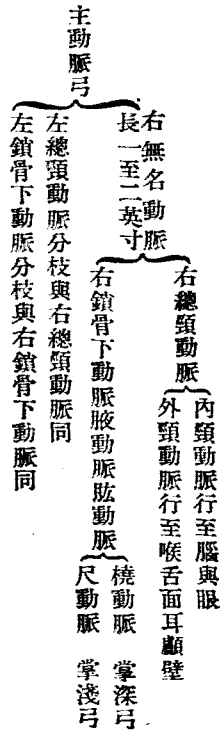 主動脈弓
右無名動脈
長一至二英寸
右總頸動脈
內頸動脈行至腦與眼
外頸動脈行至喉舌面耳顱壁
右鎖骨下動脈腋動脈肱動脈
橈動脈 掌深弓
尺動脈 掌淺弓
左總頸動脈分枝與右總頸動脈同
左鎖骨下動脈分枝與右鎖骨下動脈同